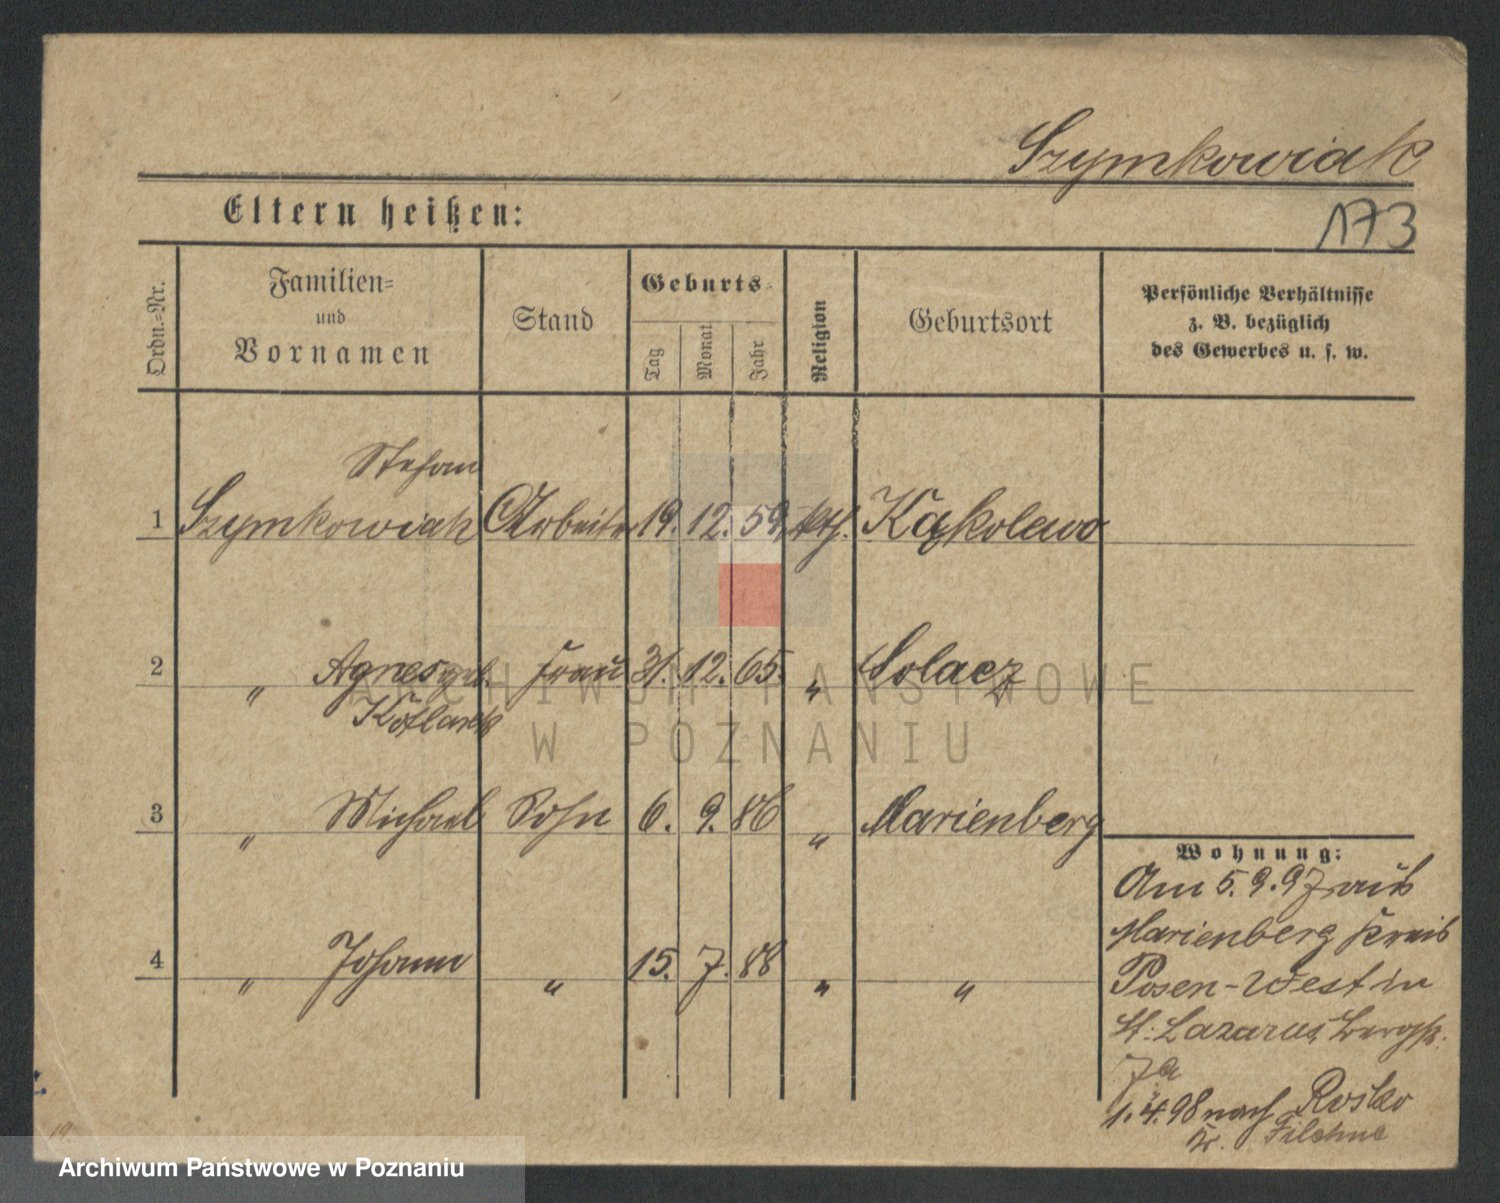 Szymkowiak
Eltern heißen:
173
Ordn.=Nr.
Familien=
und
Vornamen
Stand
Geburts-
Tag
Monat
Jahr
Religion
Geburtsort
Persönliche Verhältnisse
z. B. bezüglich
des Gewerbes u. s. w.
Stefan
1 Szymkowiak Arbeiter 19. 12. 59. kth. Kąkolewo
2 " Agnes geb. Frau 31. 12. 65. " Solacz
Kotlarek
3 " Michael Sohn 6. 9. 86 " Marienberg
4 " Johann " 15. 7. 88 " "
Wohnung:
Am 5. 9. 97 aus
Marienberg Kreis
Posen-West in
St. Lazarus Bergstr.
7a
1. 4. 98 nach Rosko
Kr. Filehne
ARCHIWUM PAŃSTWOWE
W POZNANIU
Archiwum Państwowe w Poznaniu